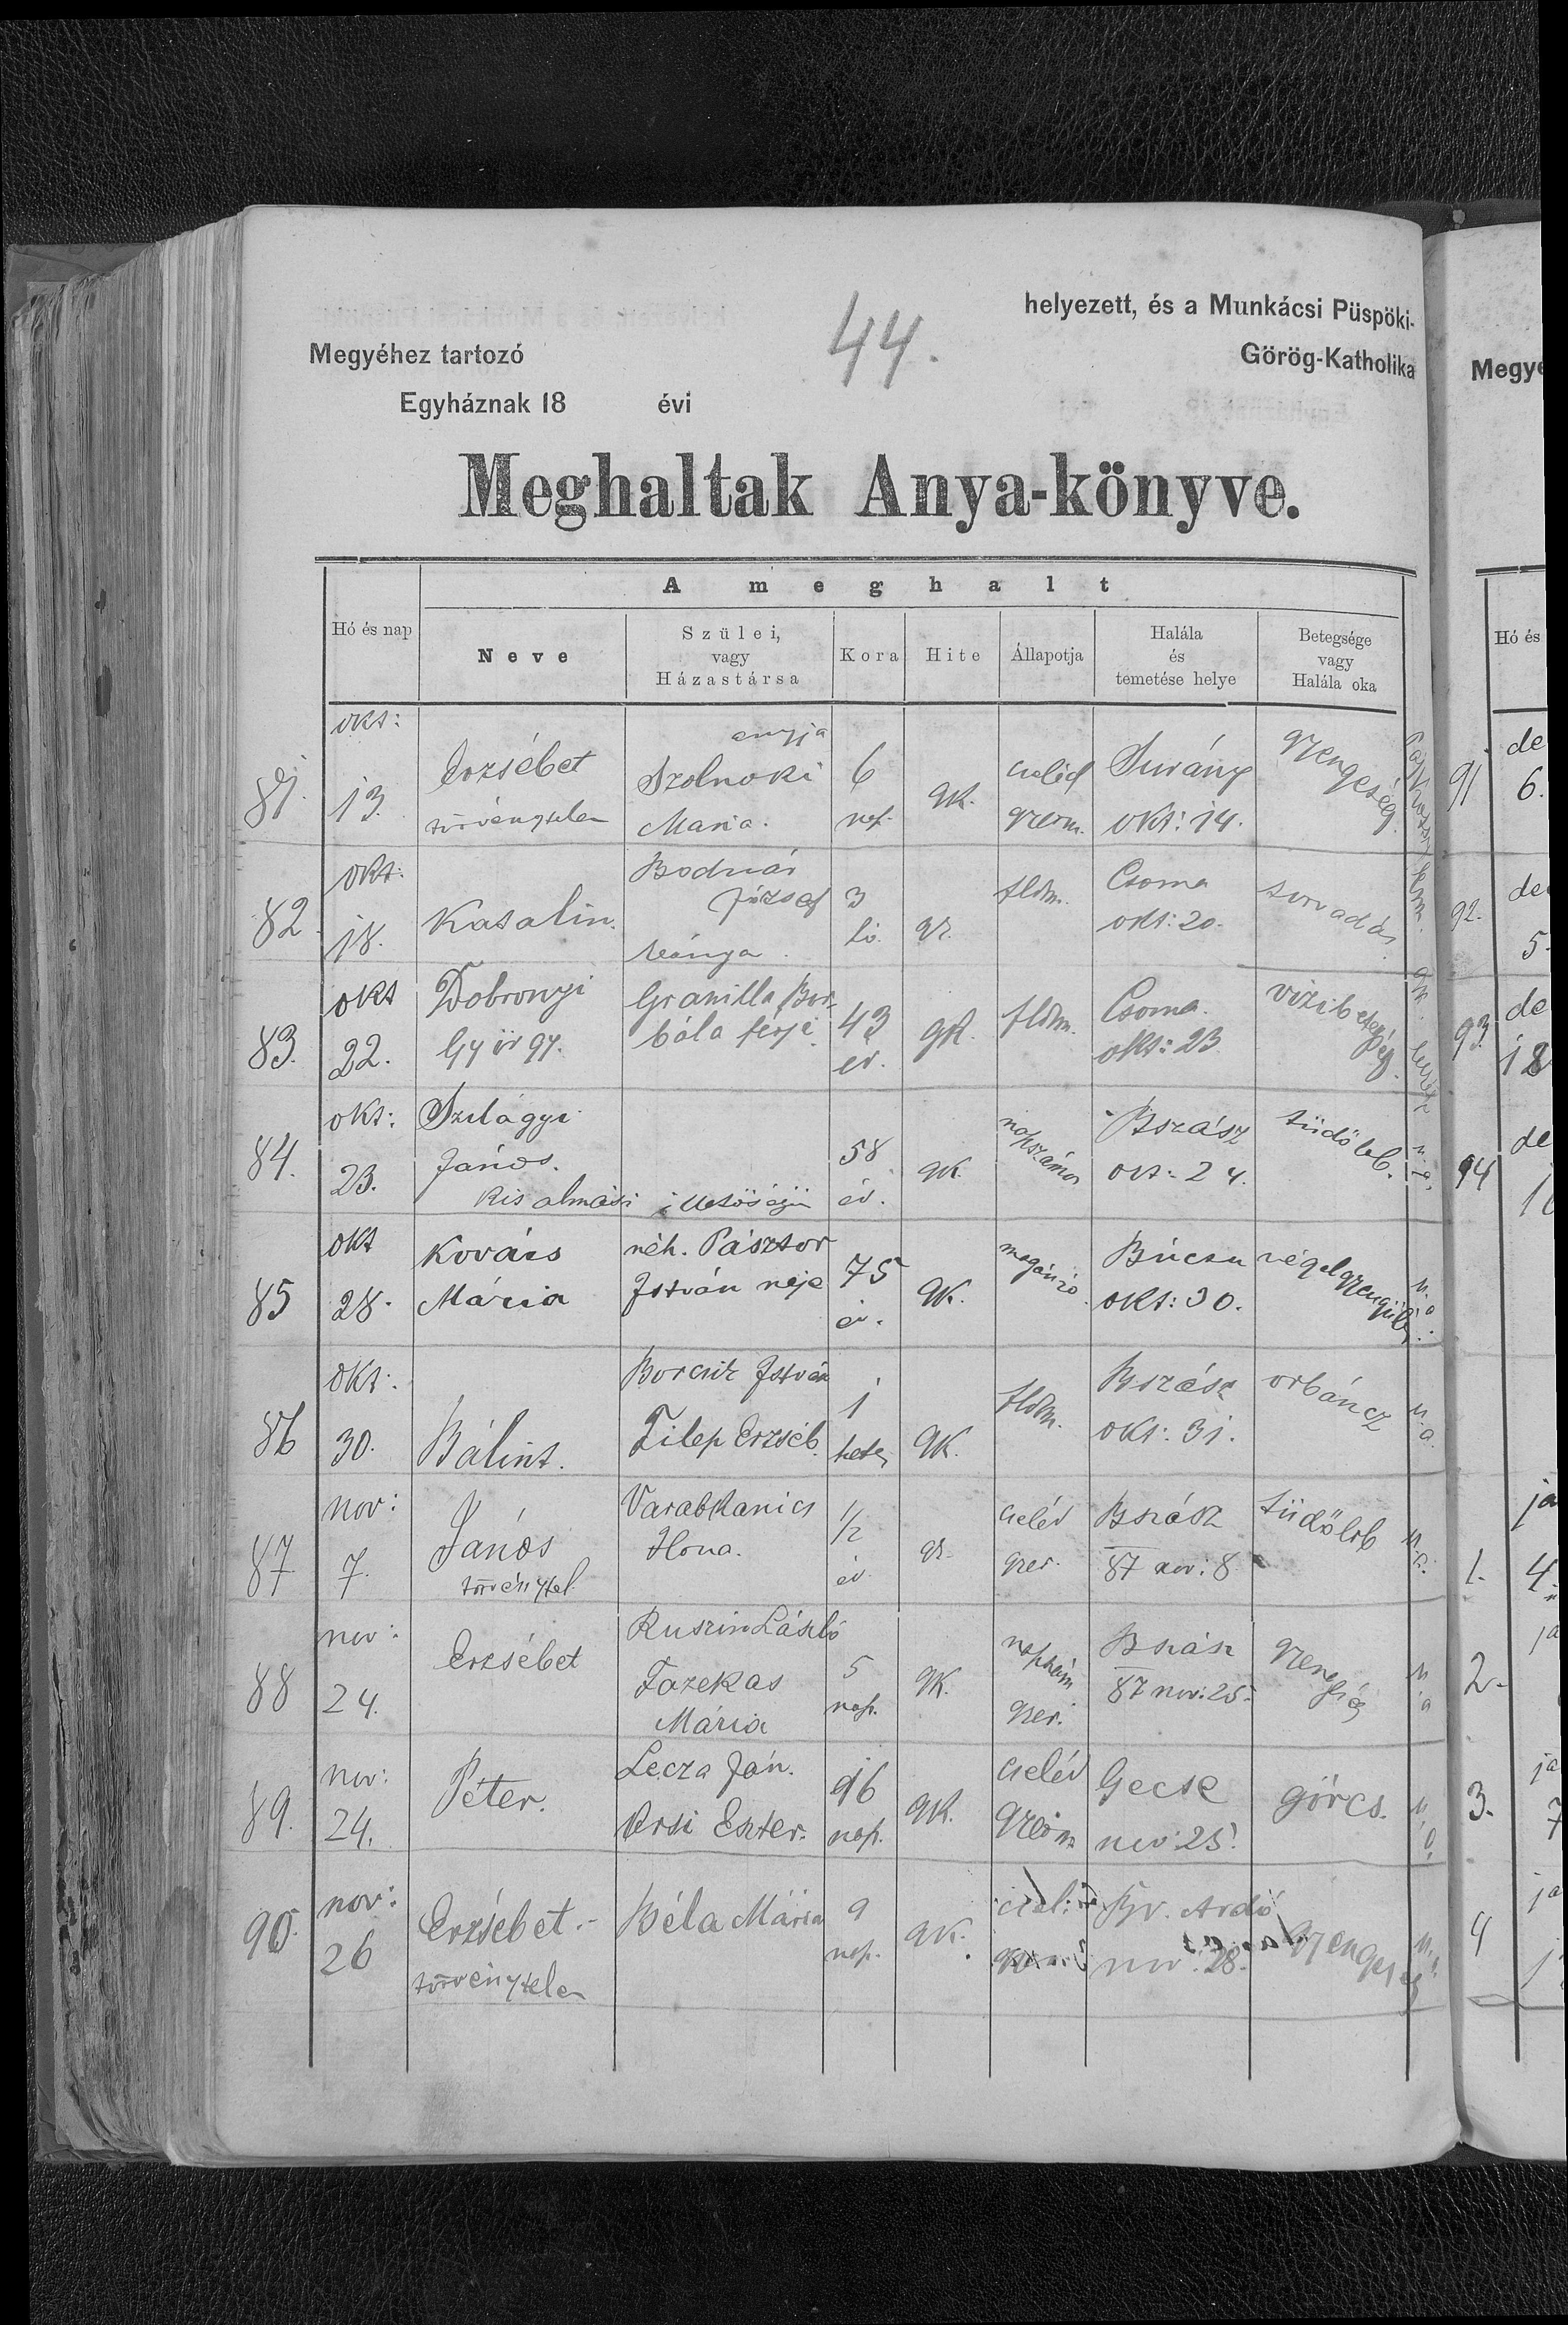 helyezett, és a Munkácsi Püspöki-
44.
Megyéhez tartozó Görög-Katholika
Egyháznak 18 évi
Meghaltak Anya-könyve.
A meghalt
Hó és nap
Neve
Szülei,
vagy
Házastársa
Kora
Hite
Állapotja
Halála
és
temetése helye
Betegsége
vagy
Halála oka
81. okt: 13.
Erzsébet
törvénytelen
anyja
Szolnoki
Maria.
6
nap.
gk.
cseléd
gyerm.
Surány
okt: 14.
gyengeség
82. okt: 18.
Katalin.
Bodnár
József
leánya
3
hó.
gk.
fldm.
Csoma
okt: 20.
sorvadás
83. okt 22.
Dobronyi
György.
Granilla Bor-
bála férje
43
év.
gk.
fldm.
Csoma.
okt: 23
vizibetegség
84. okt: 23.
Szilágyi
János.
Kis almási illetőségü
58
év.
gk.
napszámos
Bszász
okt: 24.
tüdőlob.
85 okt 28.
Kovács
Mária
néh. Pásztor
István neje
75
év.
gk.
magánzó
Búcsu
okt: 30.
végelgyengülés
u.a.
86 okt: 30.
Bálint.
Borcsik István
Filep Erzséb.
1
hetes
gk.
fldm.
Bszász
okt: 31.
orbáncz
u.a.
87 nov: 7.
János
törvénytel.
Varabkanics
Ilona.
1/2
év
gk.
cseléd
gyer.
Bszász
87 nov: 8
tüdőlob
u.a.
88 nov: 24.
Erzsébet
Ruszin László
Fazekas
Mária
5
nap.
gk.
napszám
gyer.
Bszász
87 nov: 25.
gyengeség
u.a
89. nov: 24.
Péter.
Lecza Ján.
Orsi Eszter.
16
nap.
gk.
cseléd
gyerm
Gecse
nov: 25.
görcs.
u.a.
90. nov: 26
Erzsébet.-
törvénytelen
Béla Mária
9
nap.
gk.
Ardó
nov: 28.
gyengeség
Megye
Hó és
91 de 6.
92. de 5.
93. de 18
94 de
1. ja 4.
2. ja
3. ja 7
4 ja